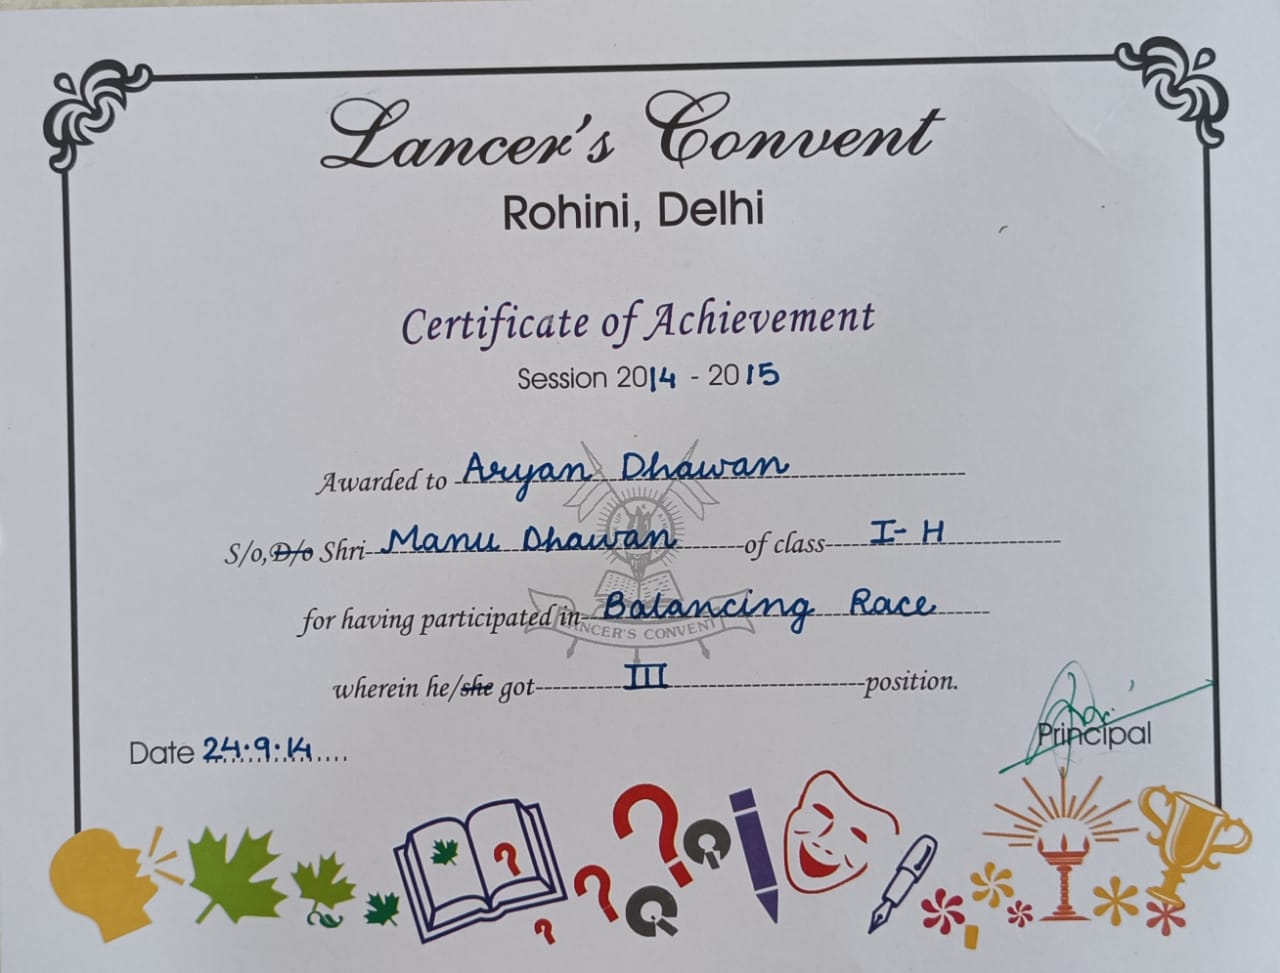 Lancer's Convent
Rohini, Delhi
Certificate of Achievement
Session 2014 - 2015
Awarded to Aryan Dhawan
S/o, D/o Shri Manu Dhawan of class I-H
for having participated in Balancing Race
LANCER'S CONVENT
wherein he/she got III position.
Principal
Date 24.9.14